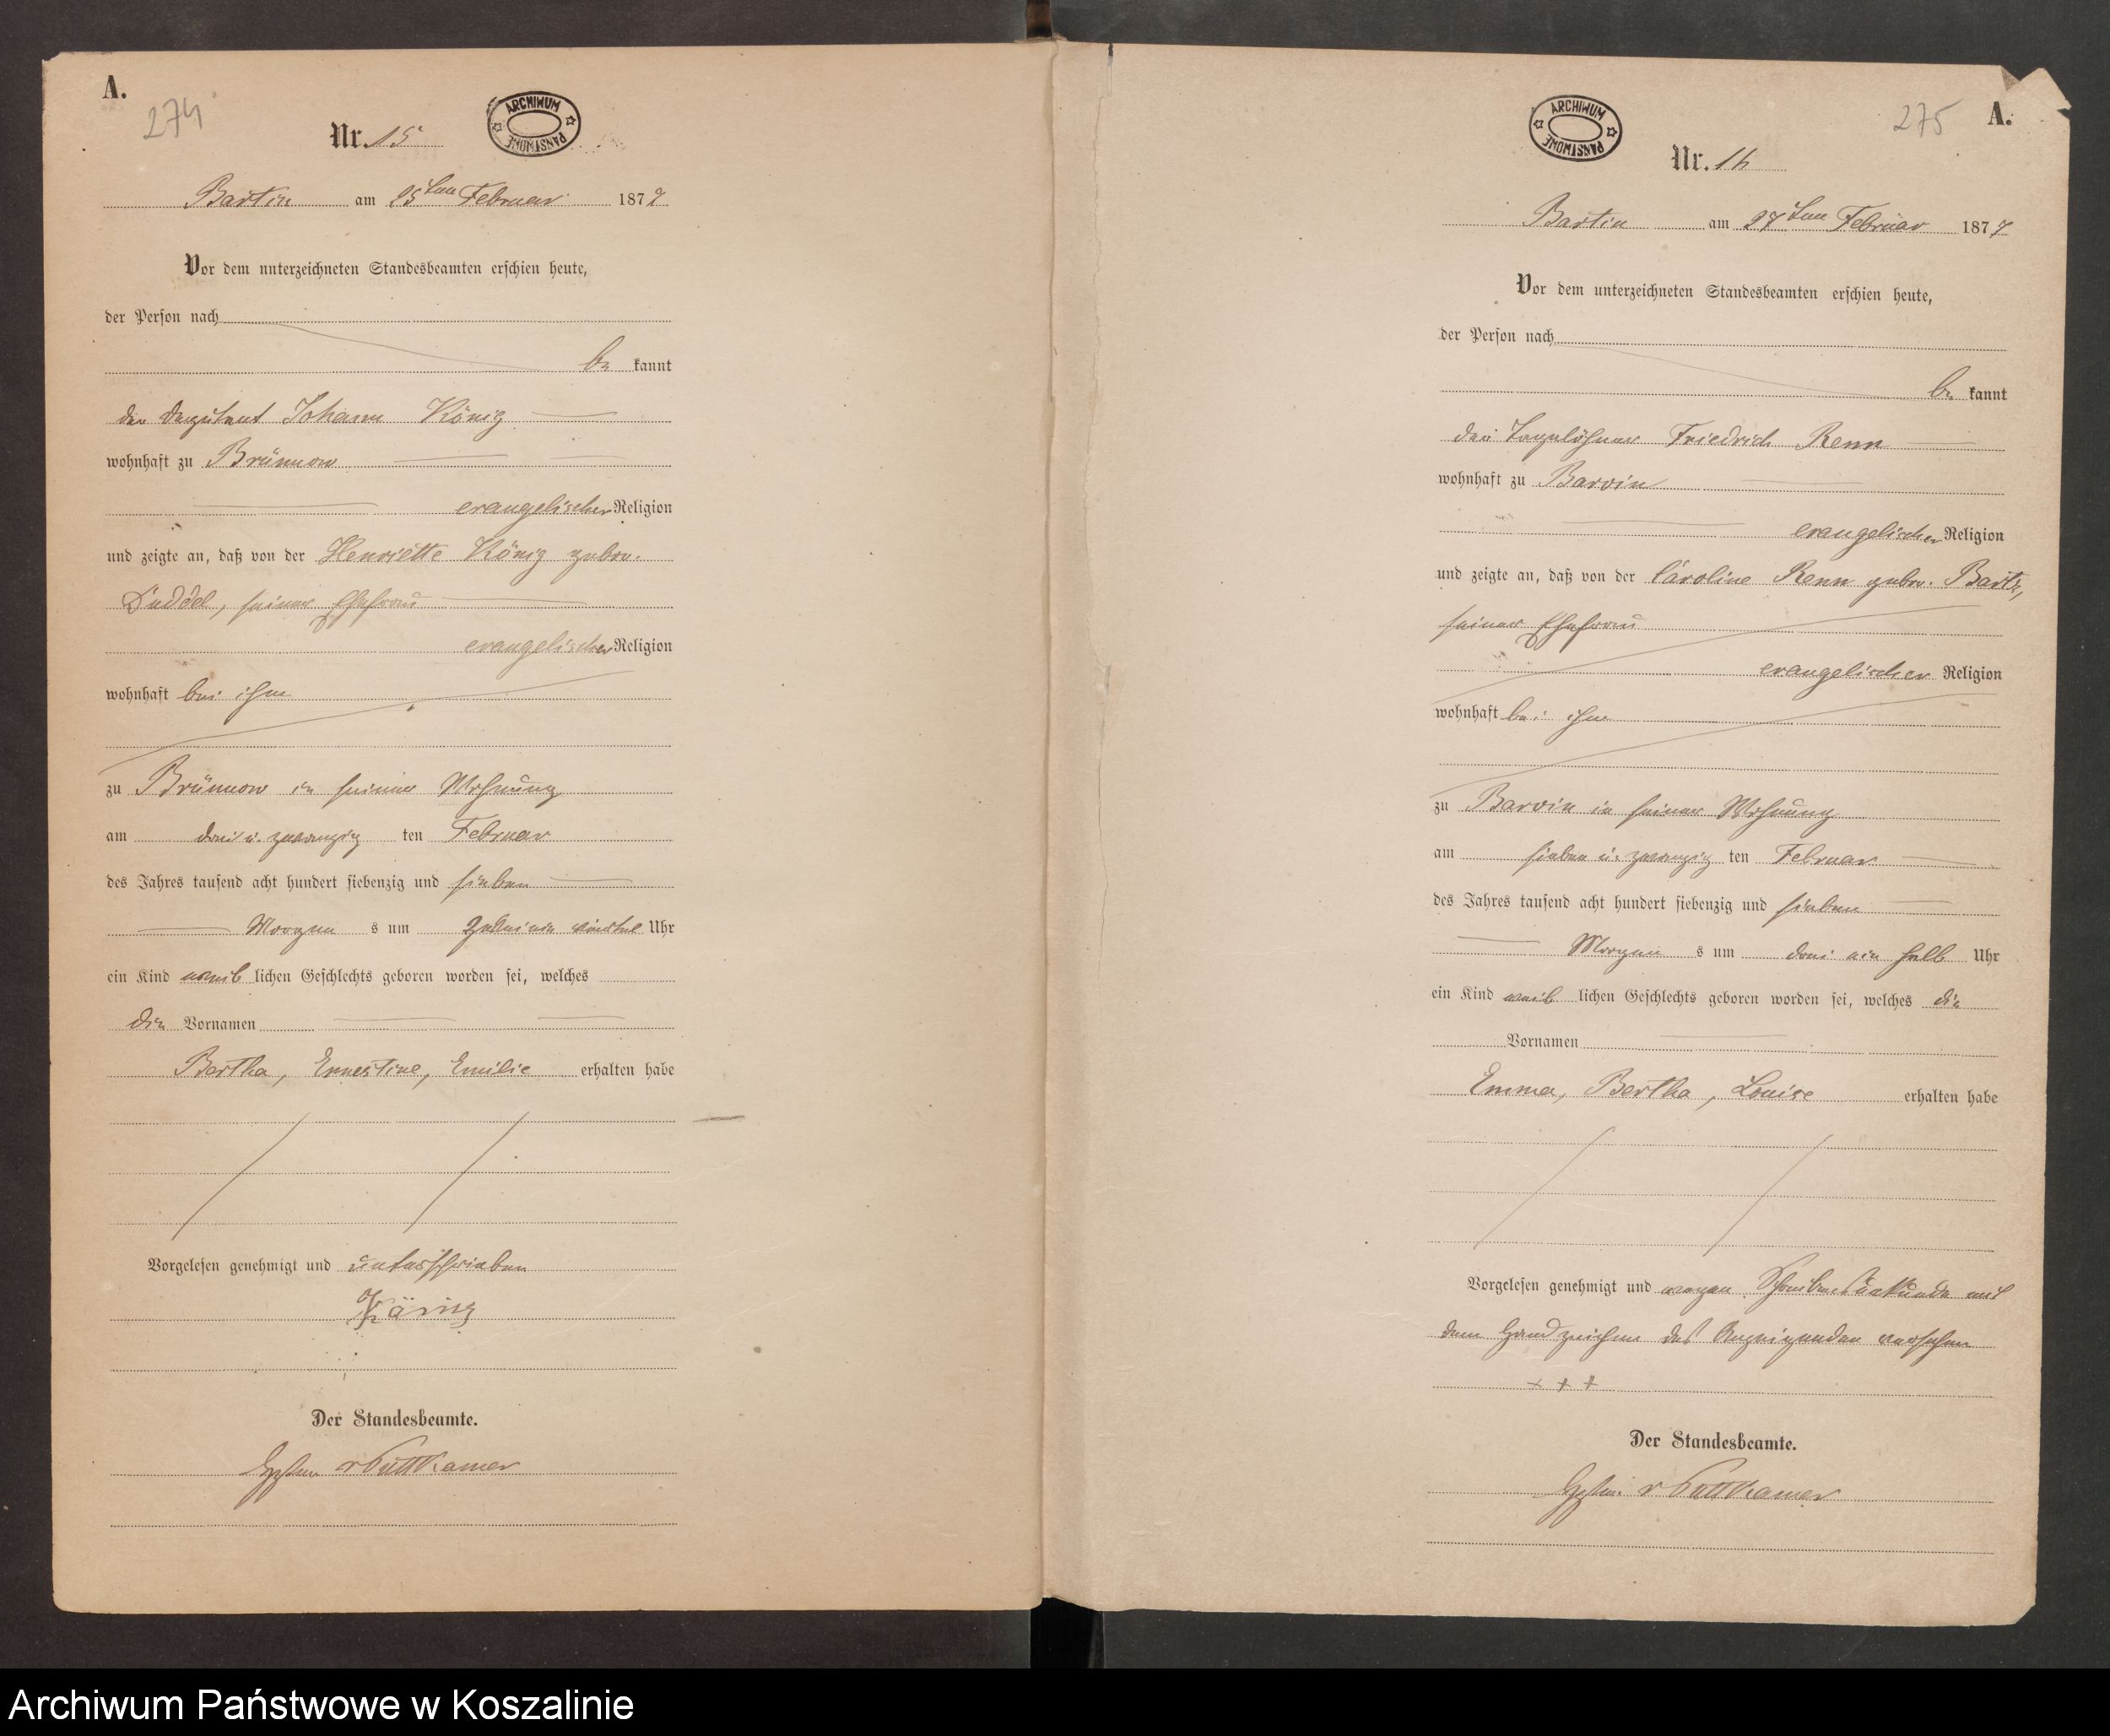 A.
274
Nr. 15
ARCHIWUM PAŃSTWOWE
Bartin am 25ten Februar 1877
Vor dem unterzeichneten Standesbeamten erschien heute,
der Person nach
be kannt
der Deputant Johann König
wohnhaft zu Brünnow
evangelischer Religion
und zeigte an, daß von der Henriette König gebor.
seiner Ehefrau
evangelischer Religion
wohnhaft bei ihm
zu Brünnow in seiner Wohnung
am drei u. zwanzig ten Februar
des Jahres tausend acht hundert siebenzig und sieben
Morgen s um Uhr
ein Kind weib lichen Geschlechts geboren worden sei, welches
die Vornamen
Bertha, Ernestine, Emilie erhalten habe
Vorgelesen genehmigt und unterschrieben
König
Der Standesbeamte.
v Puttkamer
A.
275
ARCHIWUM PAŃSTWOWE
Nr. 16
Bartin am 27ten Februar 1877
Vor dem unterzeichneten Standesbeamten erschien heute,
der Person nach
be kannt
der Tagelöhner Friedrich Renn
wohnhaft zu Barvin
evangelischer Religion
und zeigte an, daß von der Caroline Renn gebor. Bartz,
seiner Ehefrau
evangelischer Religion
wohnhaft bei ihm
zu Barvin in seiner Wohnung
am sieben u. zwanzig ten Februar
des Jahres tausend acht hundert siebenzig und sieben
Morgen s um drei ein halb Uhr
ein Kind weib lichen Geschlechts geboren worden sei, welches die
Vornamen
Emma, Bertha, Louise erhalten habe
Vorgelesen genehmigt und wegen Schreibensunkunde mit
dem Handzeichen des Anzeigenden versehen
+ + +
Der Standesbeamte.
v Puttkamer
Archiwum Państwowe w Koszalinie